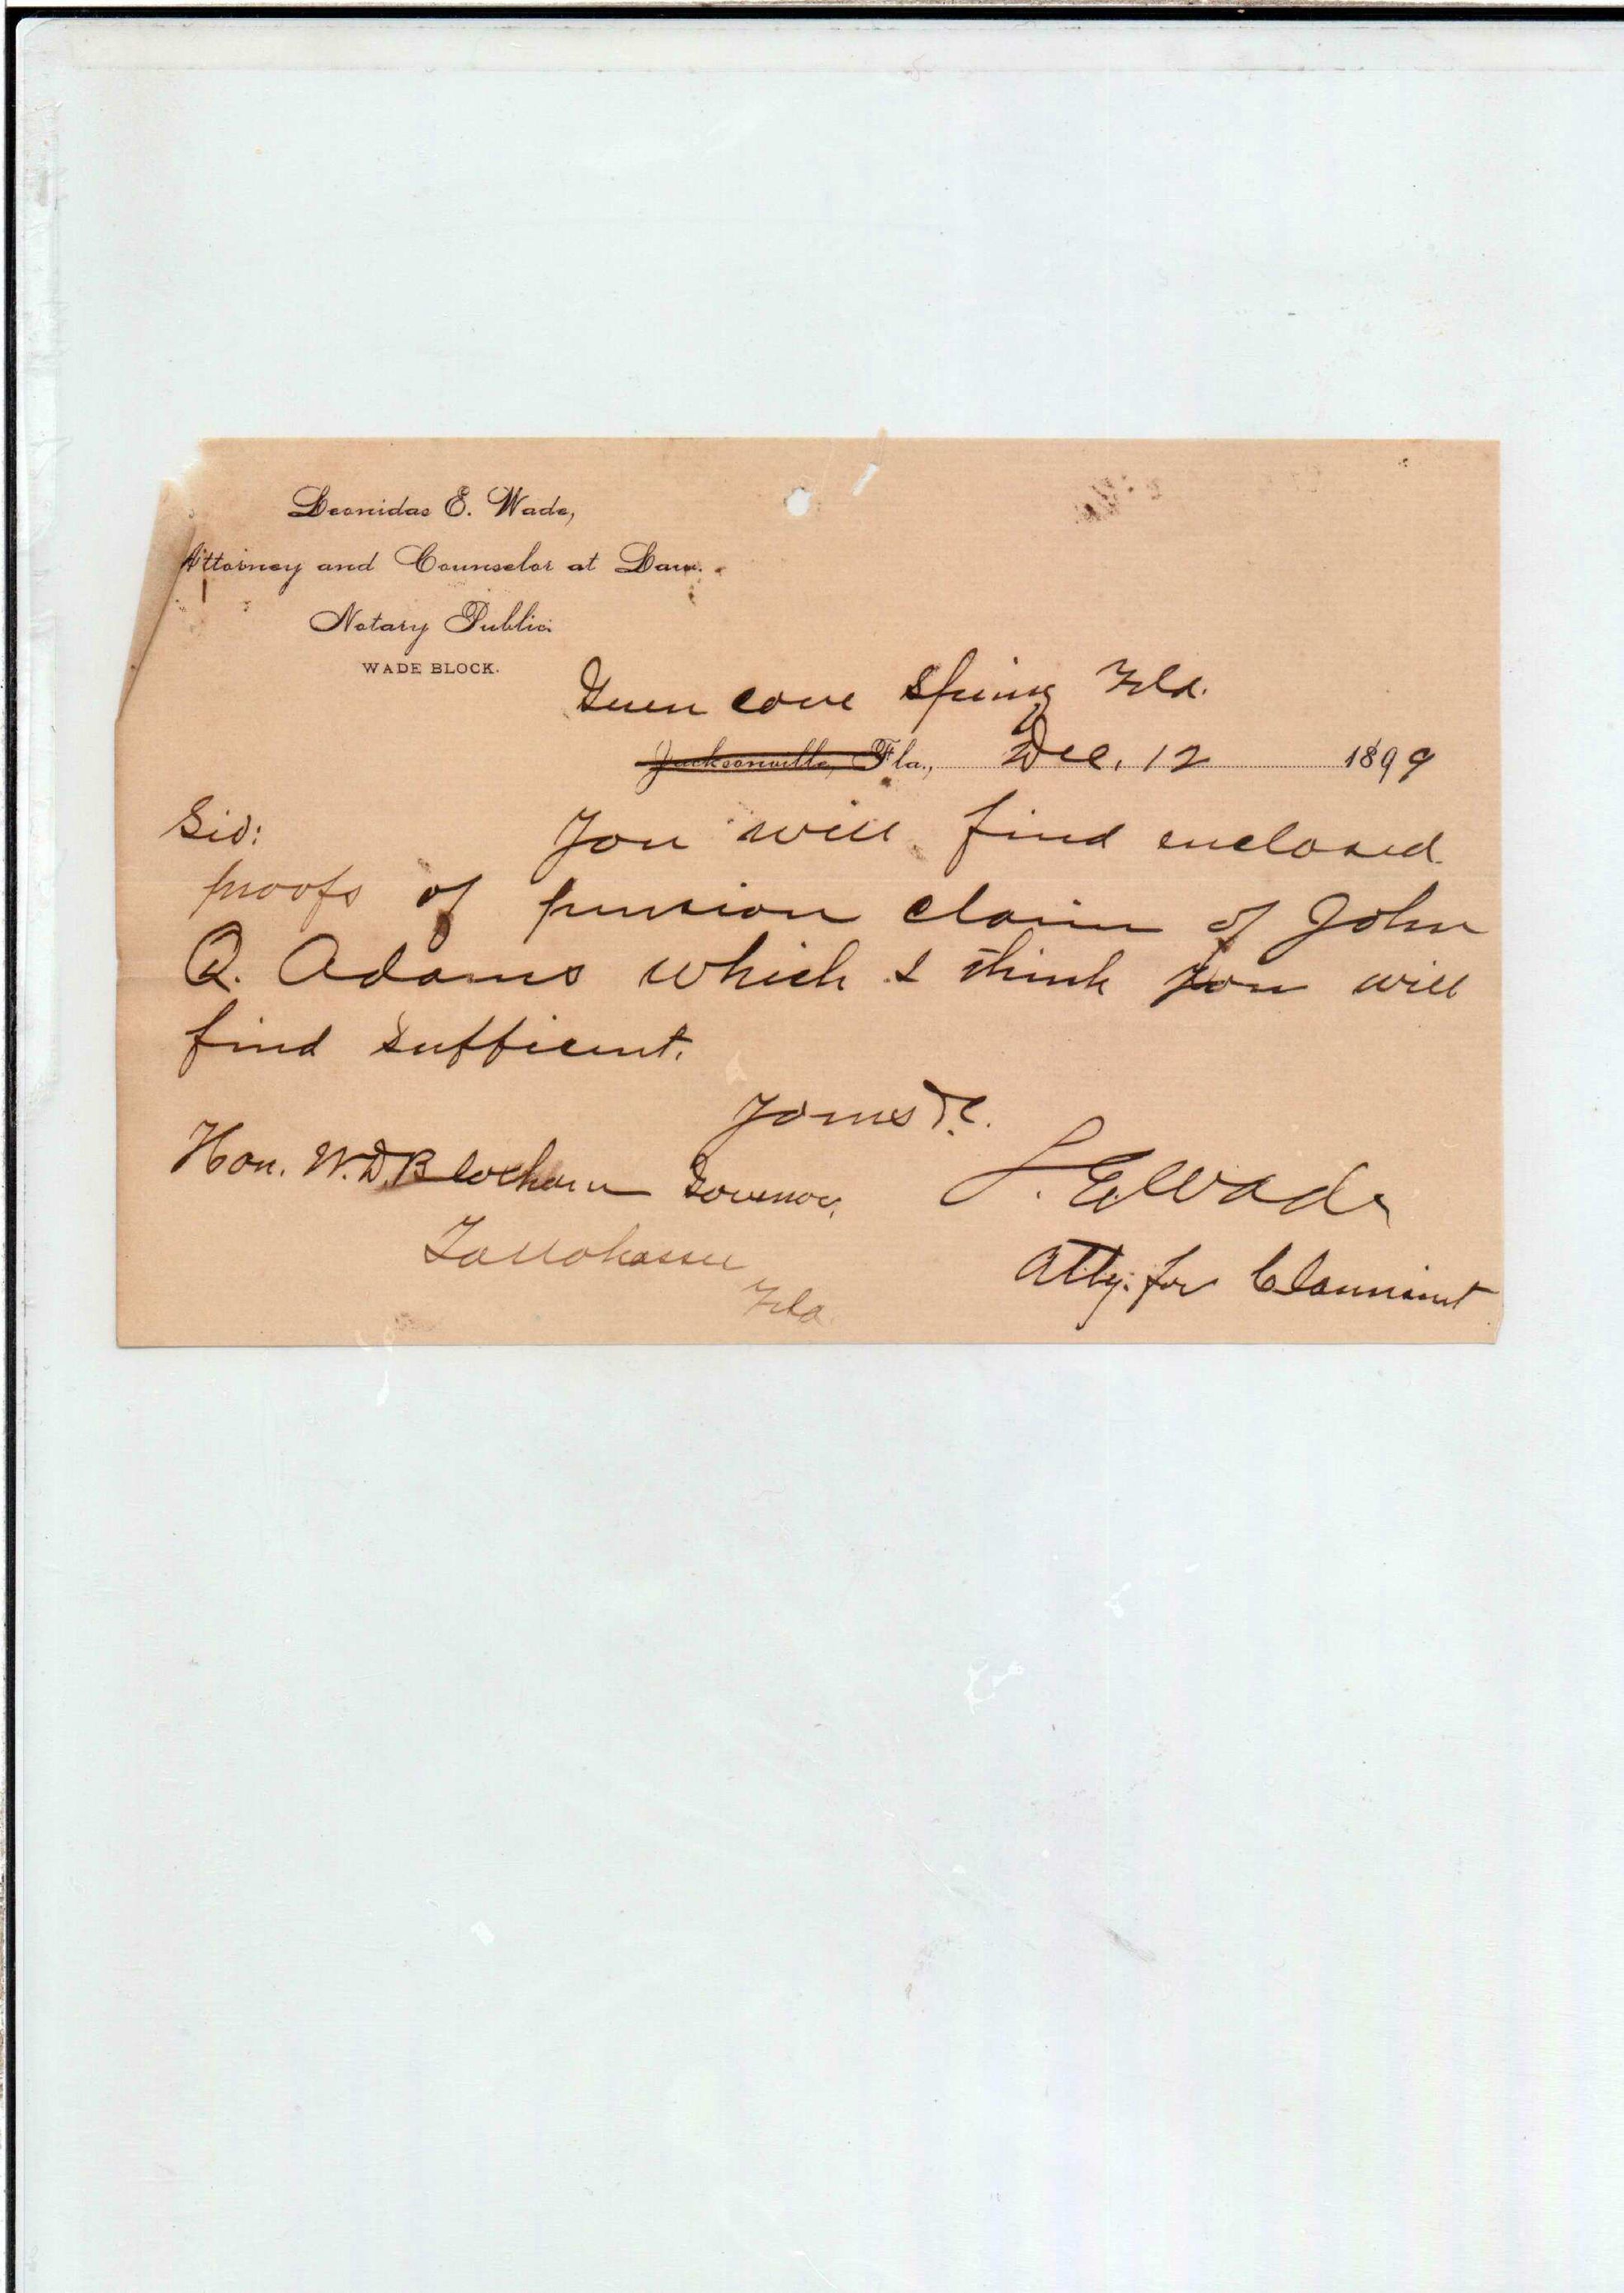 Leonidas E. Wade,
Attorney and Counselor at Law.
Notary Public.
WADE BLOCK.
Green cove Spring Fla.
Jacksonville, Fla., Dec. 12 1899
Sir: You will find enclosed
proofs of pension claim of John
Q. Adams which I think you will
find sufficient.
Yours &c.
Hon. W. D. Bloxham Governor.
L. E. Wade
Tallahassee
Fla
Atty. for Claimant